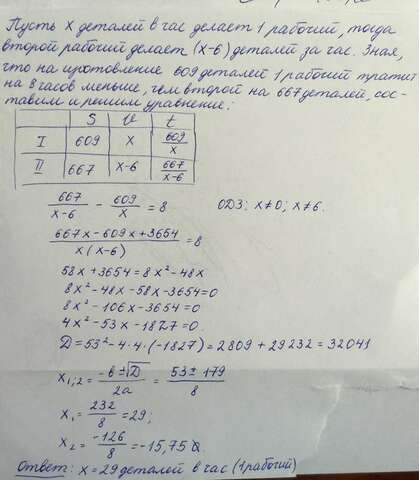 Пусть х деталей в час делает 1 рабочий, тогда
второй рабочий делает (х-6) деталей за час. Зная,
что на изготовление 609 деталей 1 рабочий тратит
на 8 часов меньше, чем второй на 667 деталей, сос-
тавим и решим уравнение:
S v t
I 609 x 609/x
II 667 x-6 667/x-6
667/x-6 - 609/x = 8 ОДЗ: x≠0; x≠6.
667x-609x+3654/x(x-6) = 8
58x+3654=8x²-48x
8x²-48x-58x-3654=0
8x²-106x-3654=0
4x²-53x-1827=0.
D=53²-4·4·(-1827)=2809+29232=32041
x₁,₂=-b±√D/2a = 53±179/8
x₁=232/8=29,
x₂=-126/8=-15,75
Ответ: x=29 деталей в час (1 рабочий)